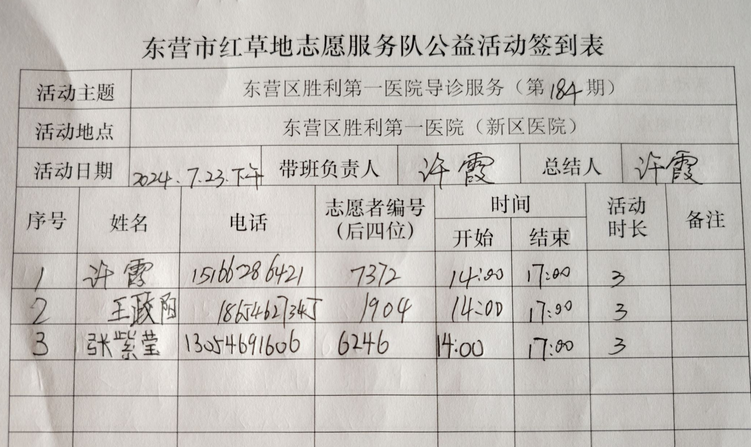 东营市红草地志愿服务队公益活动签到表
活动主题 东营区胜利第一医院导诊服务（第184期）
活动地点 东营区胜利第一医院（新区医院）
活动日期 2024.7.23.下午 带班负责人 许霞 总结人 许霞
序号 姓名 电话 志愿者编号（后四位） 时间 开始 结束 活动时长 备注
1 许霞 15166286421 7372 14:00 17:00 3
2 王政阳 18654627345 1904 14:00 17:00 3
3 张紫莹 13054691606 6246 14:00 17:00 3